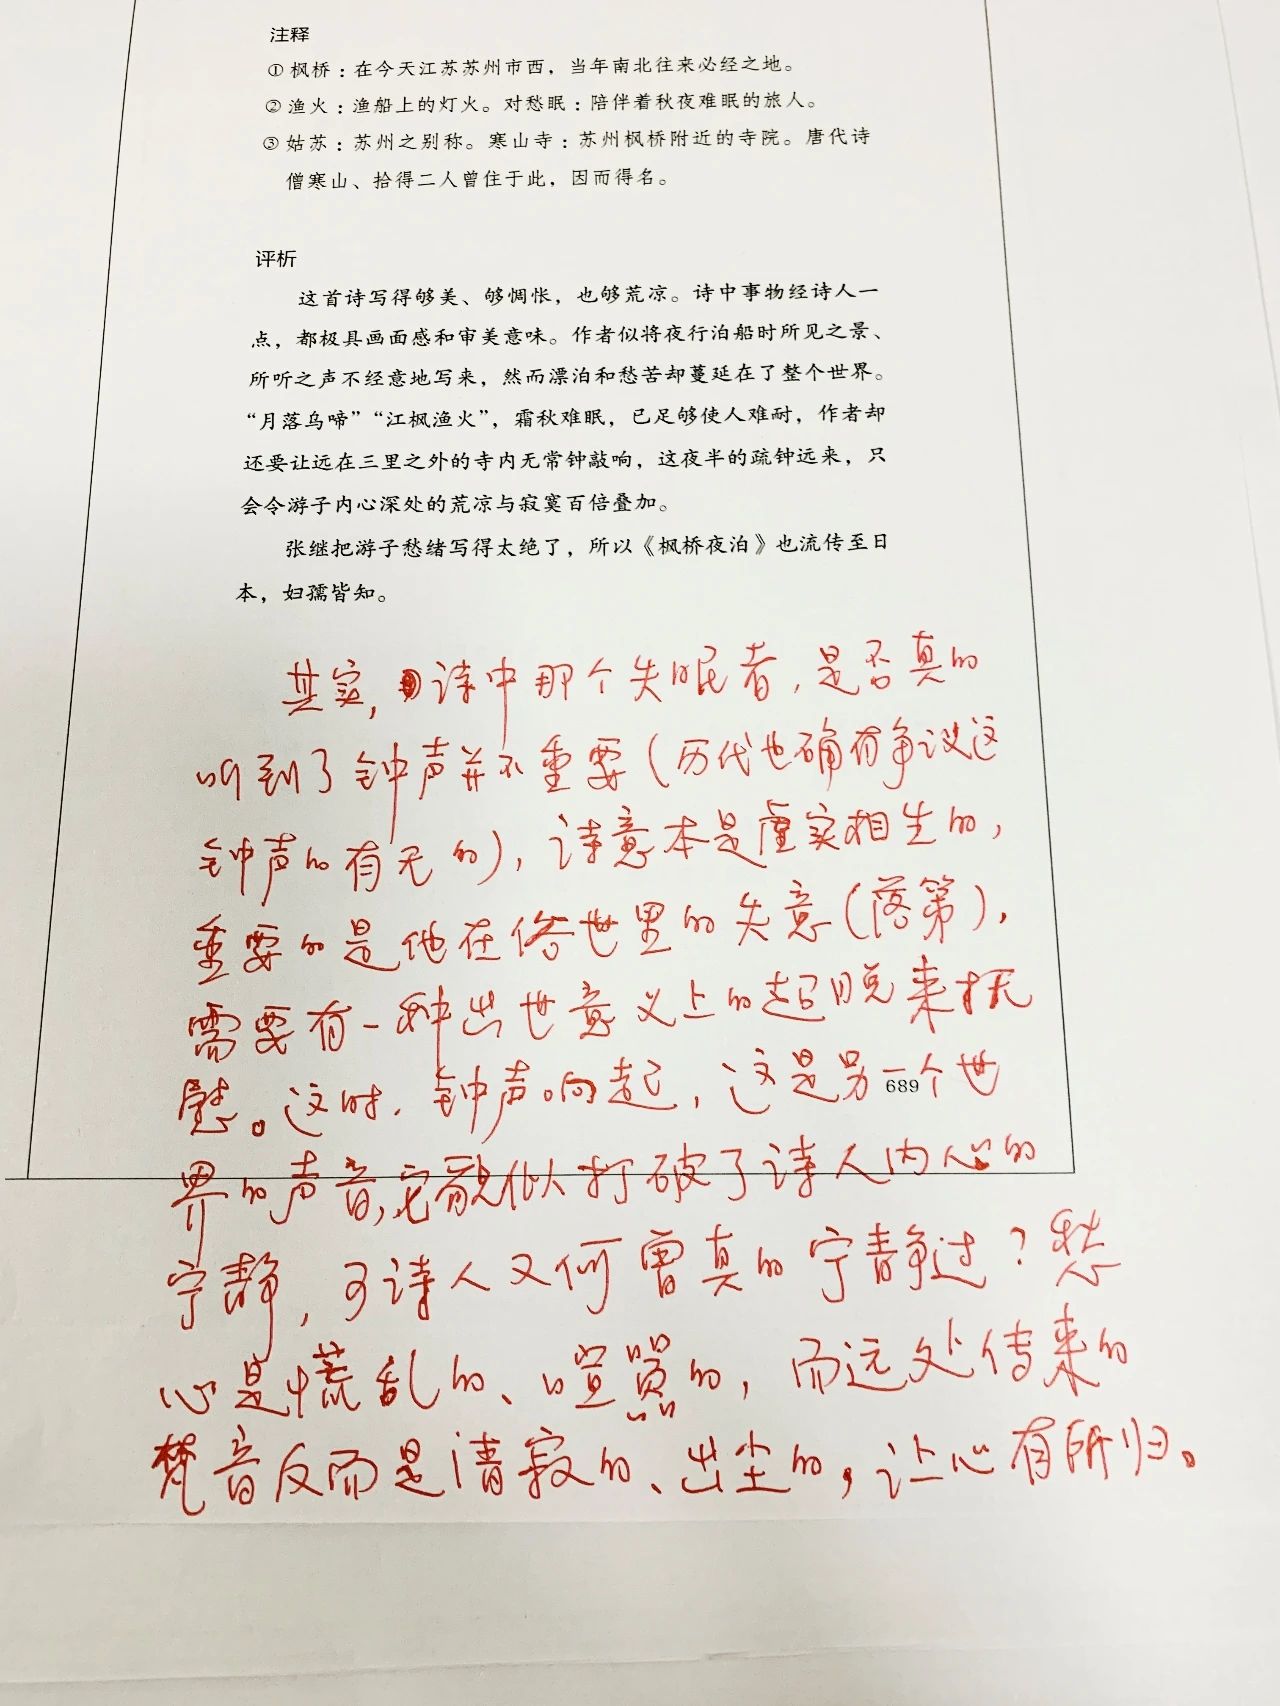 注释
① 枫桥：在今天江苏苏州市西，当年南北往来必经之地。
② 渔火：渔船上的灯火。对愁眠：陪伴着秋夜难眠的旅人。
③ 姑苏：苏州之别称。寒山寺：苏州枫桥附近的寺院。唐代诗
僧寒山、拾得二人曾住于此，因而得名。
评析
这首诗写得够美、够惆怅，也够荒凉。诗中事物经诗人一
点，都极具画面感和审美意味。作者似将夜行泊船时所见之景、
所听之声不经意地写来，然而漂泊和愁苦却蔓延在了整个世界。
“月落乌啼”“江枫渔火”，霜秋难眠，已足够使人难耐，作者却
还要让远在三里之外的寺内无常钟敲响，这夜半的疏钟远来，只
会令游子内心深处的荒凉与寂寞百倍叠加。
张继把游子愁绪写得太绝了，所以《枫桥夜泊》也流传至日
本，妇孺皆知。
其实，诗中那个失眠者，是否真的
听到了钟声并不重要（历代也确有争议这
钟声的有无的），诗意本是虚实相生的，
重要的是他在俗世里的失意（落第），
需要有一种出世意义上的超脱来抚
慰。这时，钟声响起，这是另一个世
689
界的声音，它貌似打破了诗人内心的
宁静，可诗人又何曾真的宁静过？愁
心是慌乱的、喧嚣的，而远处传来的
梵音反而是清寂的、出尘的，让心有所归。